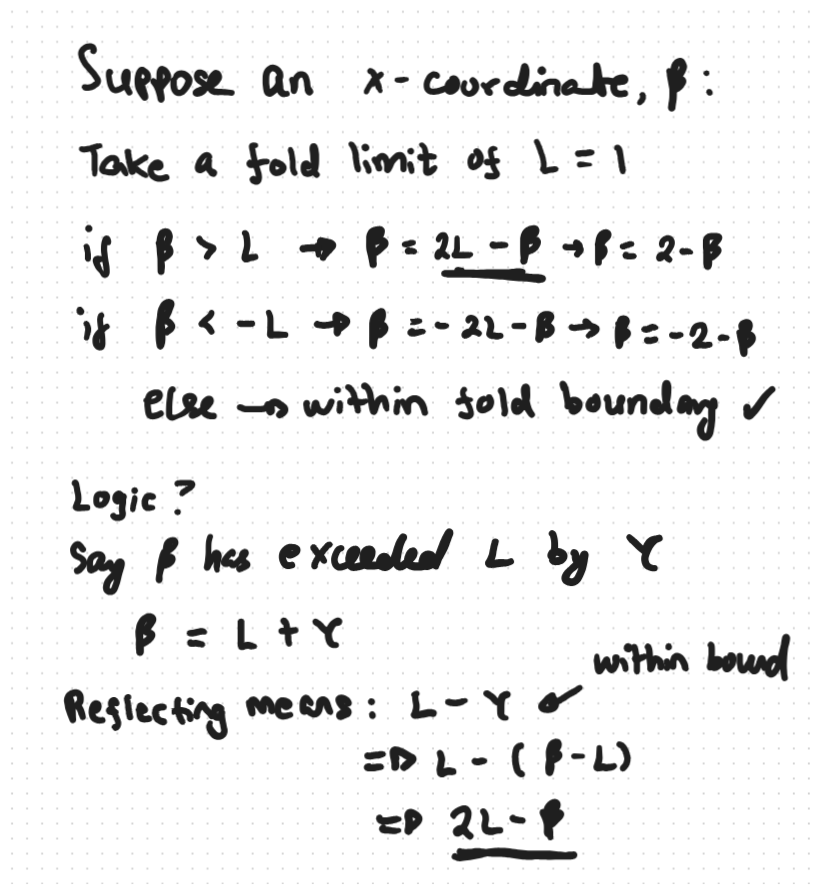 Suppose an x-coordinate, β:
Take a fold limit of L = 1
if β > L → β = 2L - β → β = 2 - β
if β < -L → β = -2L - β → β = -2 - β
else → within fold boundary ✓
Logic?
Say β has exceeded L by γ
β = L + γ
within bound
Reflecting means: L - γ
=> L - (β - L)
=> 2L - β